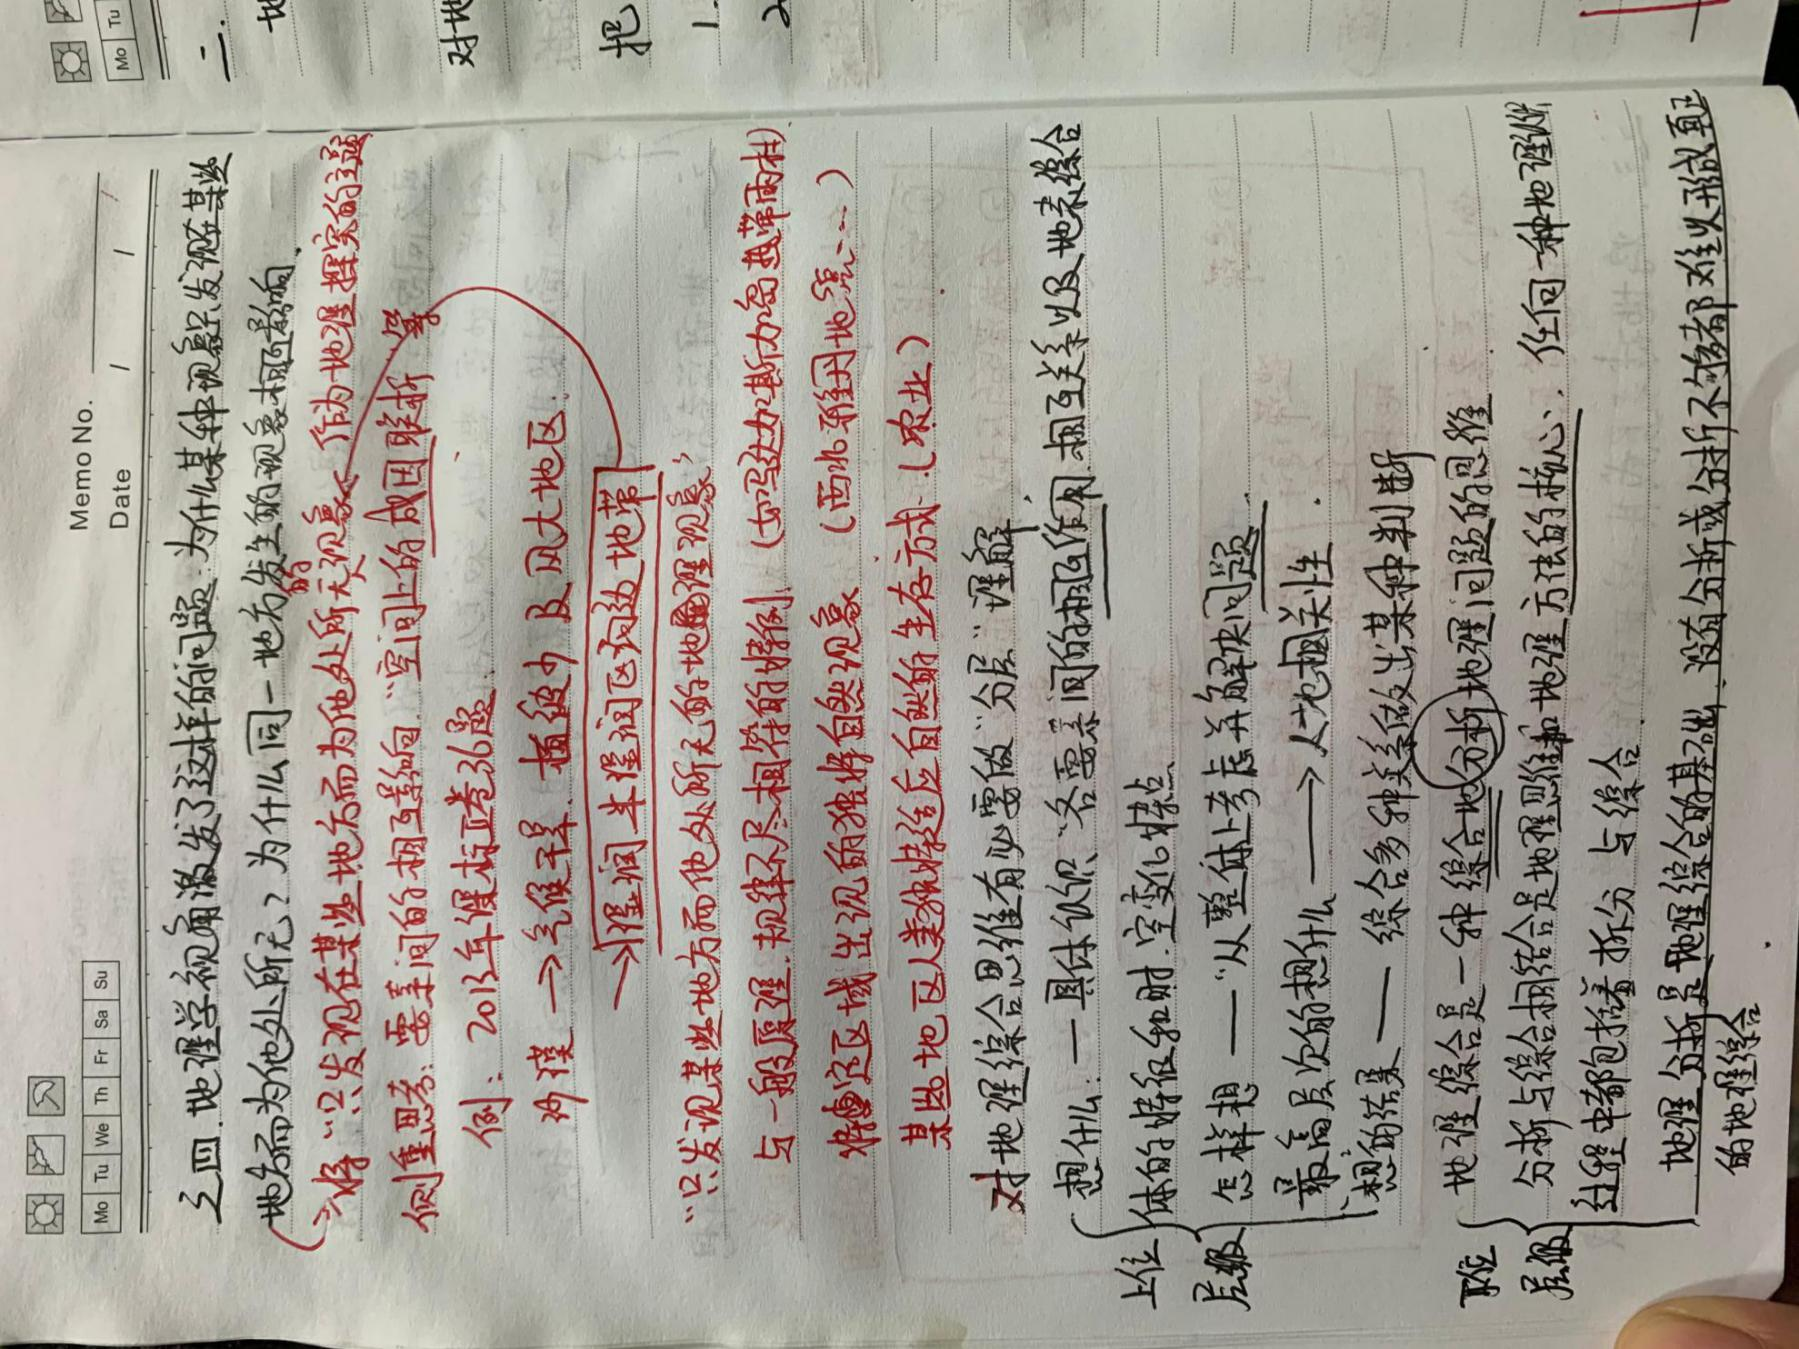 Memo No.
Mo Tu We Th Fr Sa Su
Date / /
之四.地理学视角激发了这样的问题:为什么某种现象只发现在某些
地方而为他处所无?为什么同一地方发生的现象相互影响.
将“只发现在某些地方而为他处所无的现象”作为地理探究的主题
侧重思考:要素间的相互影响“空间上的成因联系”
例:2013年课标卷36题.
沙漠→气候干旱.植被少及风大地区.
→湿润半湿润区河边地带
“只发现某些地方而他处所无的地理现象”
与一般原理.规律不尽相符的特例.(如马达加斯加岛热带雨林)
特定区域出现的独特自然现象.(西北雅丹地貌……)
某些地区人类独特适应自然的生存方式.(农业)
对地理综合思维有必要做“分层”理解
上位
层级
想什么.—具体认识“各要素间的相互作用.相互关系以及地表综合
体的特征和时.空变化特点.
怎样想—“从整体上考虑并解决问题”
最高层次的想什么→人地相关性.
想的结果—综合多种关系做出某种判断
下位
层级
地理综合是一种综合地分析地理问题的思维
分析与综合相结合是地理思维和地理方法的核心.任何一种地理认识
过程中都包括着拆分与综合
地理分析是地理综合的基础.没有分析或分析不够者都难以形成真正
的地理综合.
Mo Tu
二.
地
对地
把
1.
2